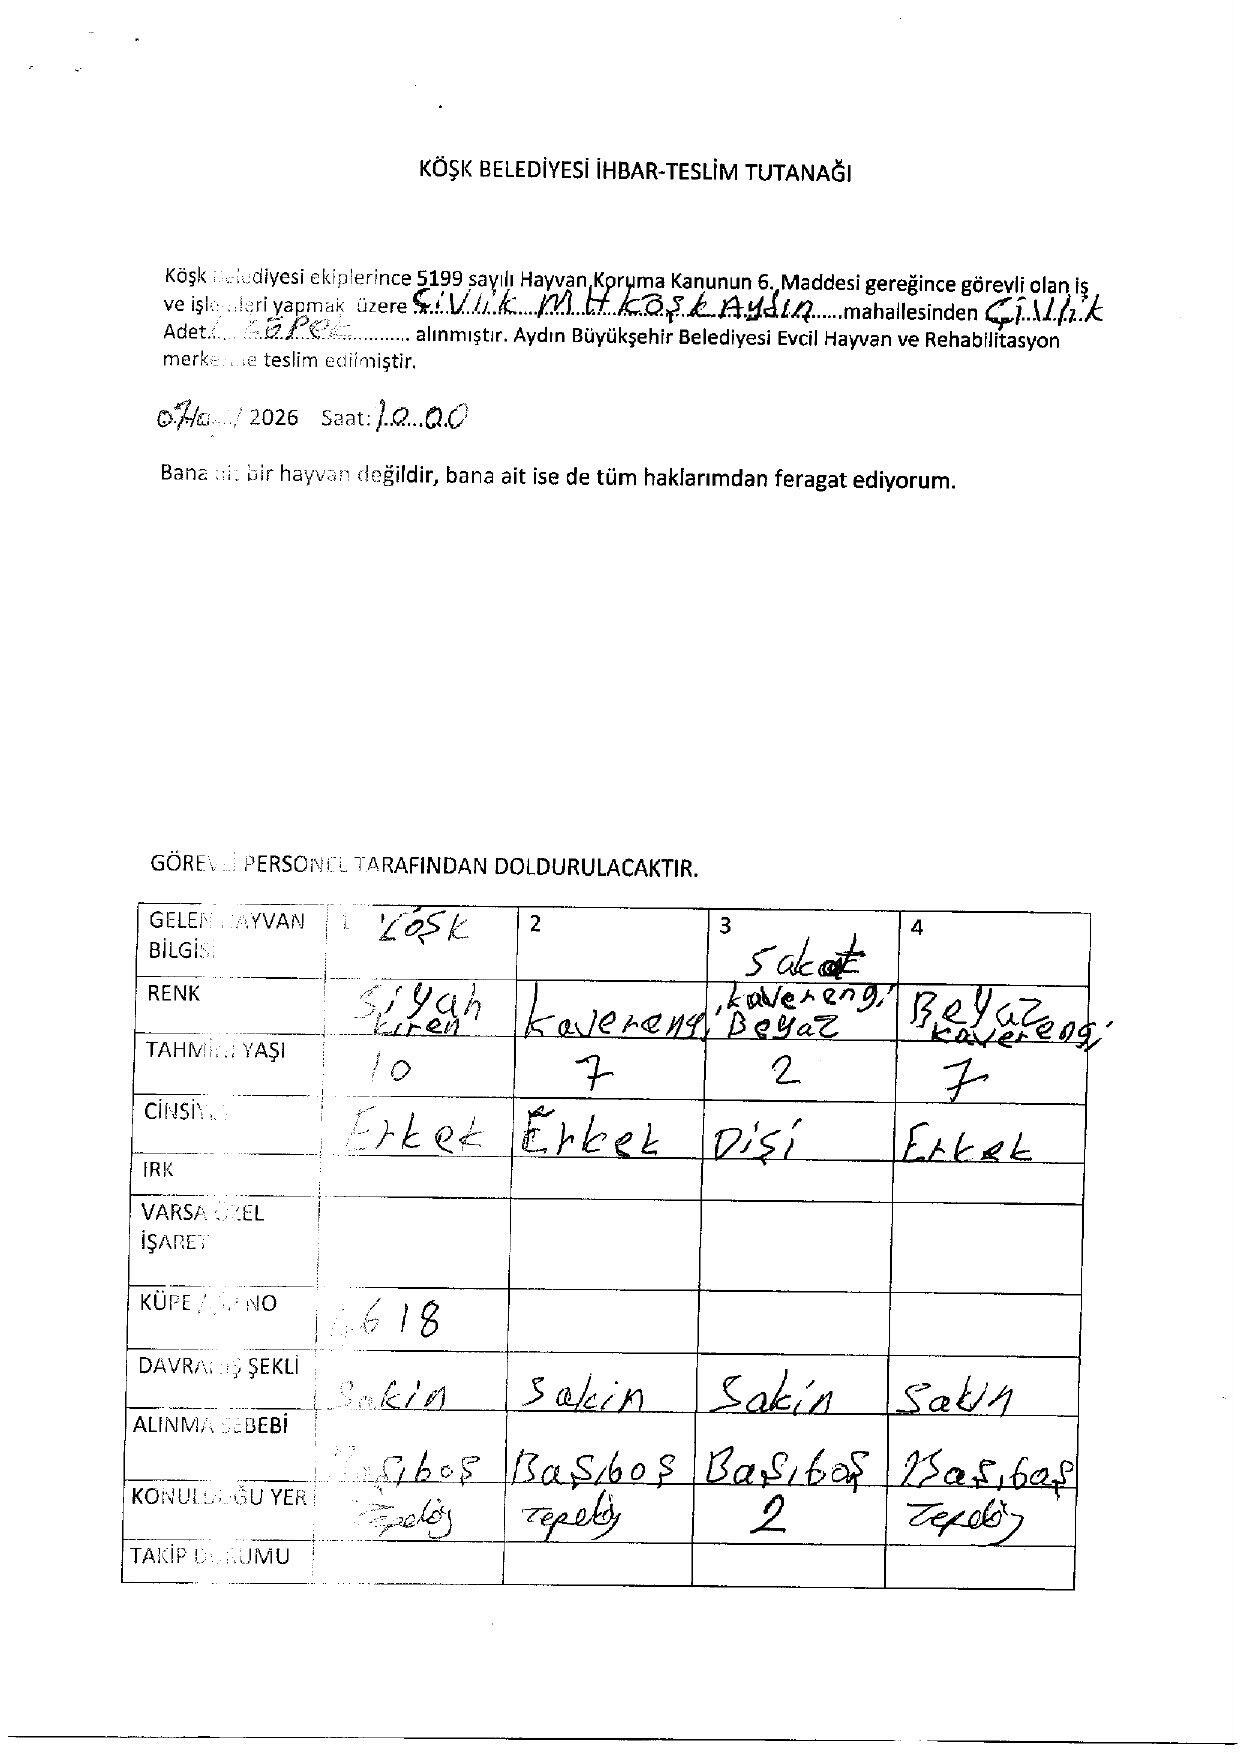 KÖŞK BELEDİYESİ İHBAR-TESLİM TUTANAĞI
Köşk diyesi ekiplerince 5199 sayılı Hayvan Koruma Kanunun 6. Maddesi gereğince görevli olan iş
ve işle leri yapmak üzere Çivlik MH KöşK Aydın......mahallesinden Çivlik
Adet. ............ alınmıştır. Aydın Büyükşehir Belediyesi Evcil Hayvan ve Rehabilitasyon
merke e teslim edilmiştir.
07/ / 2026 Saat: 10..00
Bana bir hayvan değildir, bana ait ise de tüm haklarımdan feragat ediyorum.
GÖREV PERSONEL TARAFINDAN DOLDURULACAKTIR.
GELEN AYVAN 1 KöşK 2 3 4
BİLGİS Sakat
RENK Siyah kaverengi kaverengi Beyaz
Beyaz kaverengi
TAHMİ YAŞI 10 7 2 7
CİNSİY Erkek Erkek Dişi Erkek
IRK
VARSA EL
İŞARET
KÜPE NO 618
DAVRA Ş ŞEKLİ Sakin Sakin Sakin Sakin
ALINMA SEBEBİ Başıboş Başıboş Başıboş Başıboş
KONUL ĞU YER Tepeköy Tepeköy 2 Tepeköy
TAKİP UMU